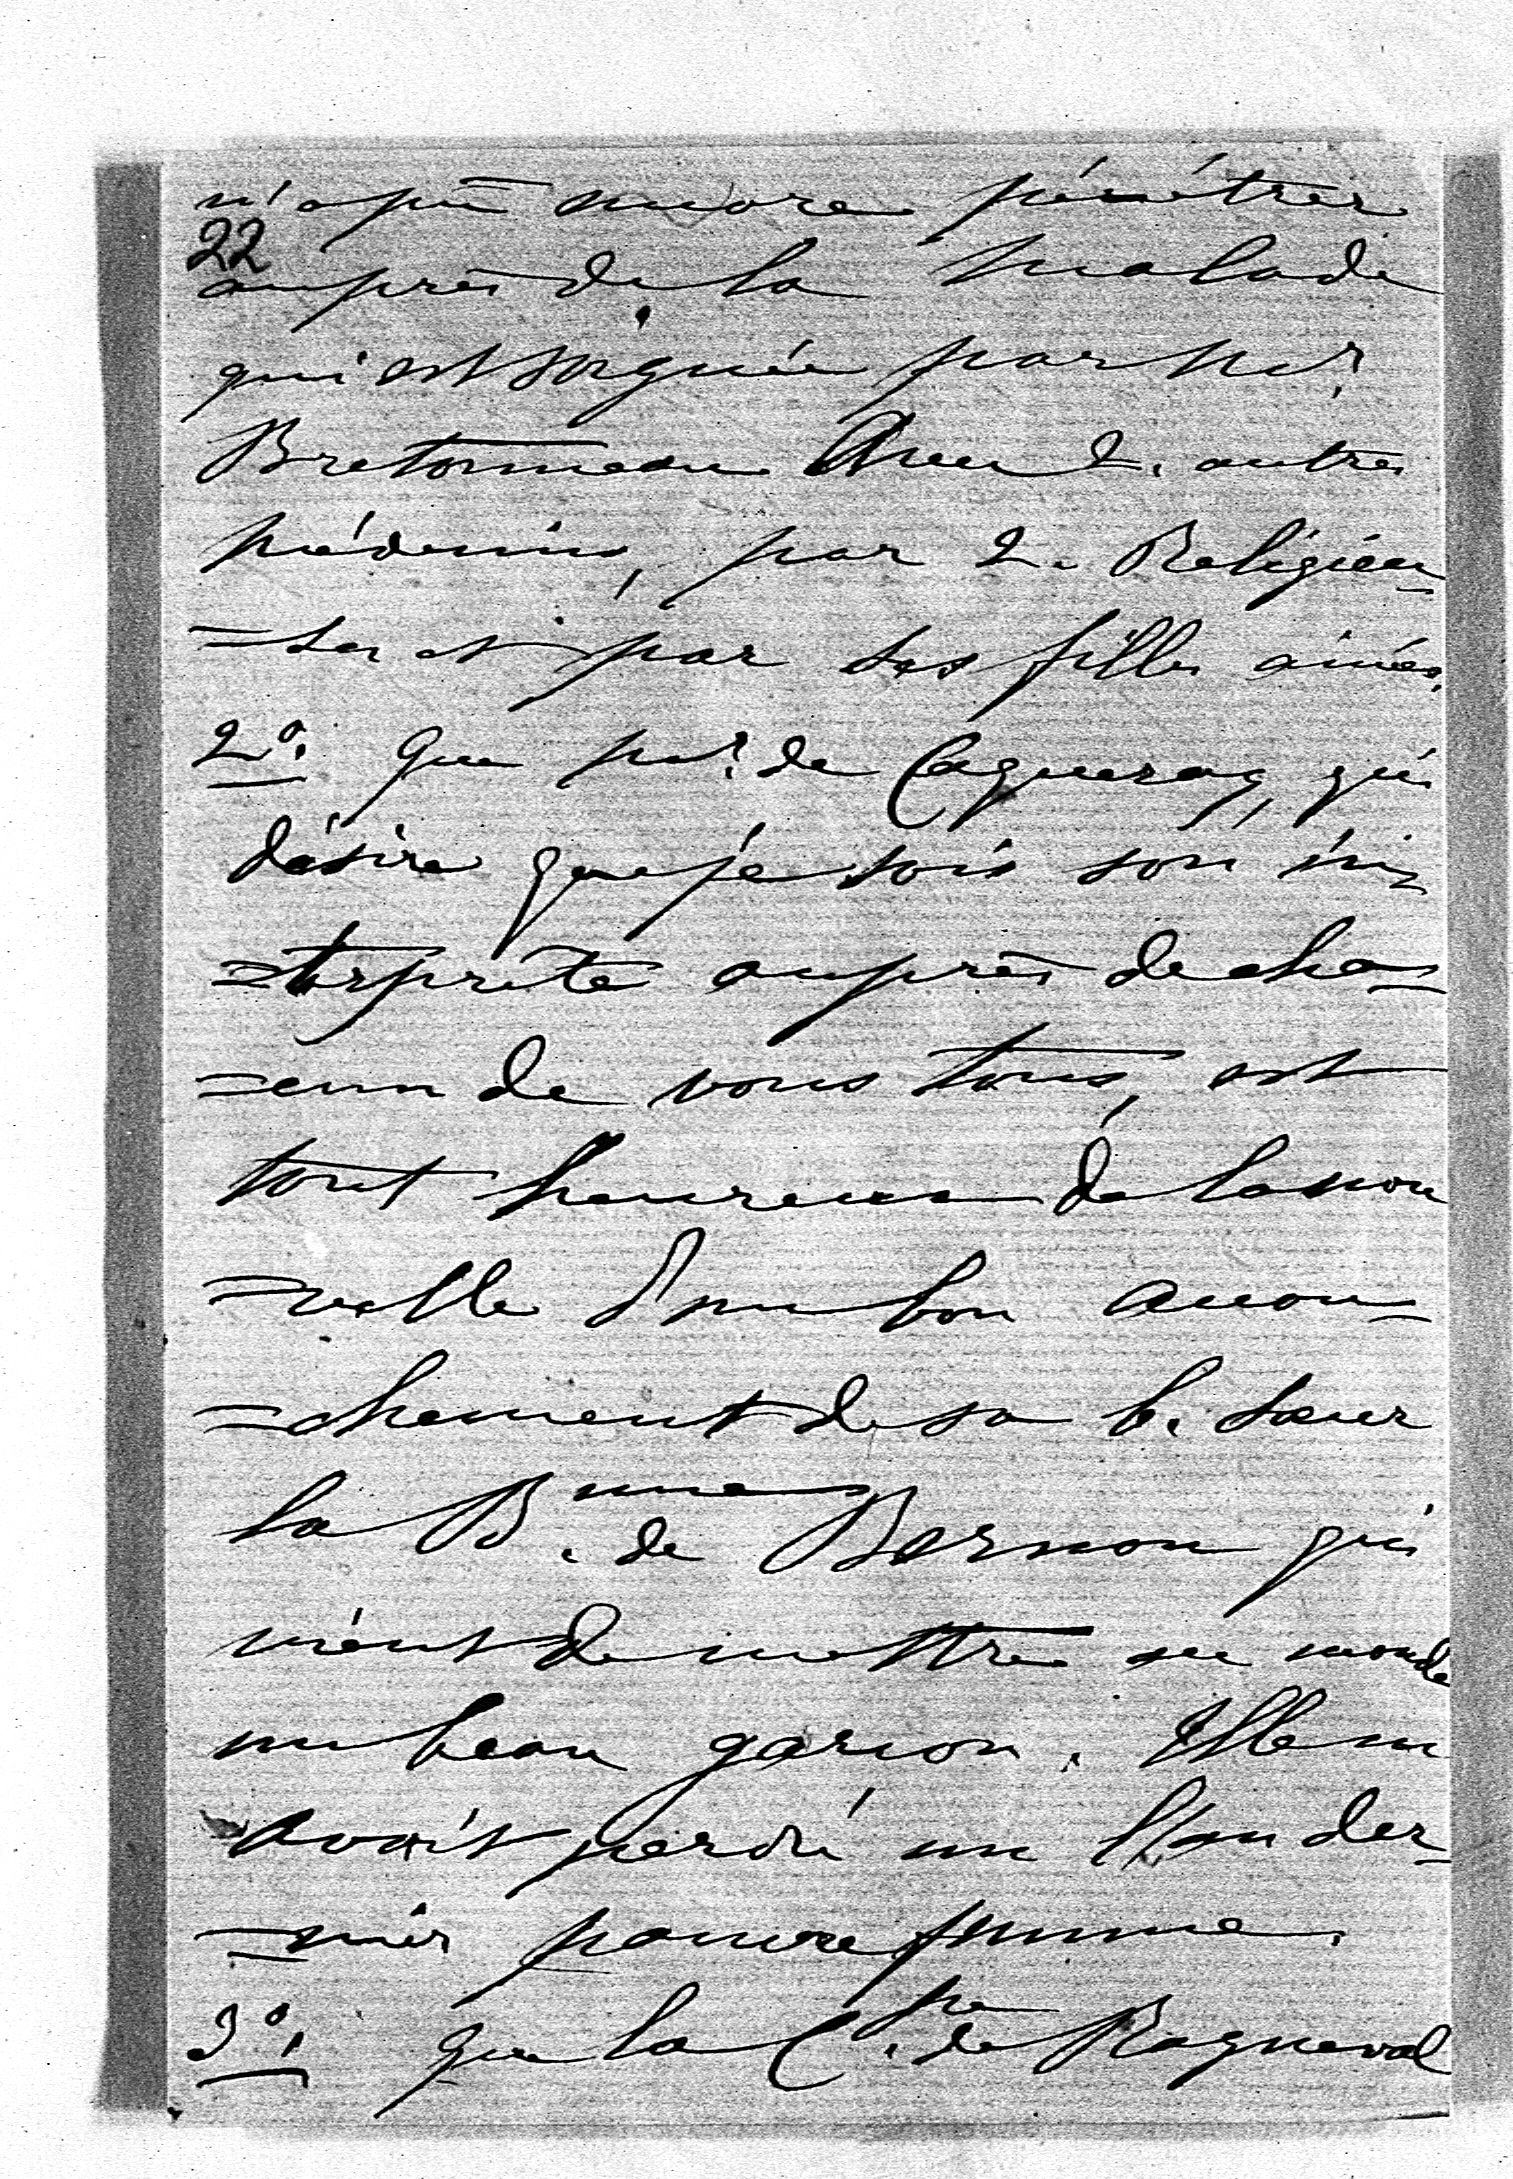 n'a pu encore pénétrer
22
auprès de la malade
qui est soignée par Mr.
Bretonneau avec 2. autres
médecins, par 2. Religieu-
=ses et par ses filles ainées.
2o. que Mr. de Caqueray, qui
désire que je sois son in-
=terprète auprès de cha-
=cun de vous tous, est
tout heureux de la nou
=velle d'un bon accou-
=chement de sa b. sœur
la Bnne. de Bernon qui
vient de mettre au monde
un beau garçon. Elle en
avait perdu un l'an der-
=nier pauvre femme.
3o. que la Csse. de Rayneval